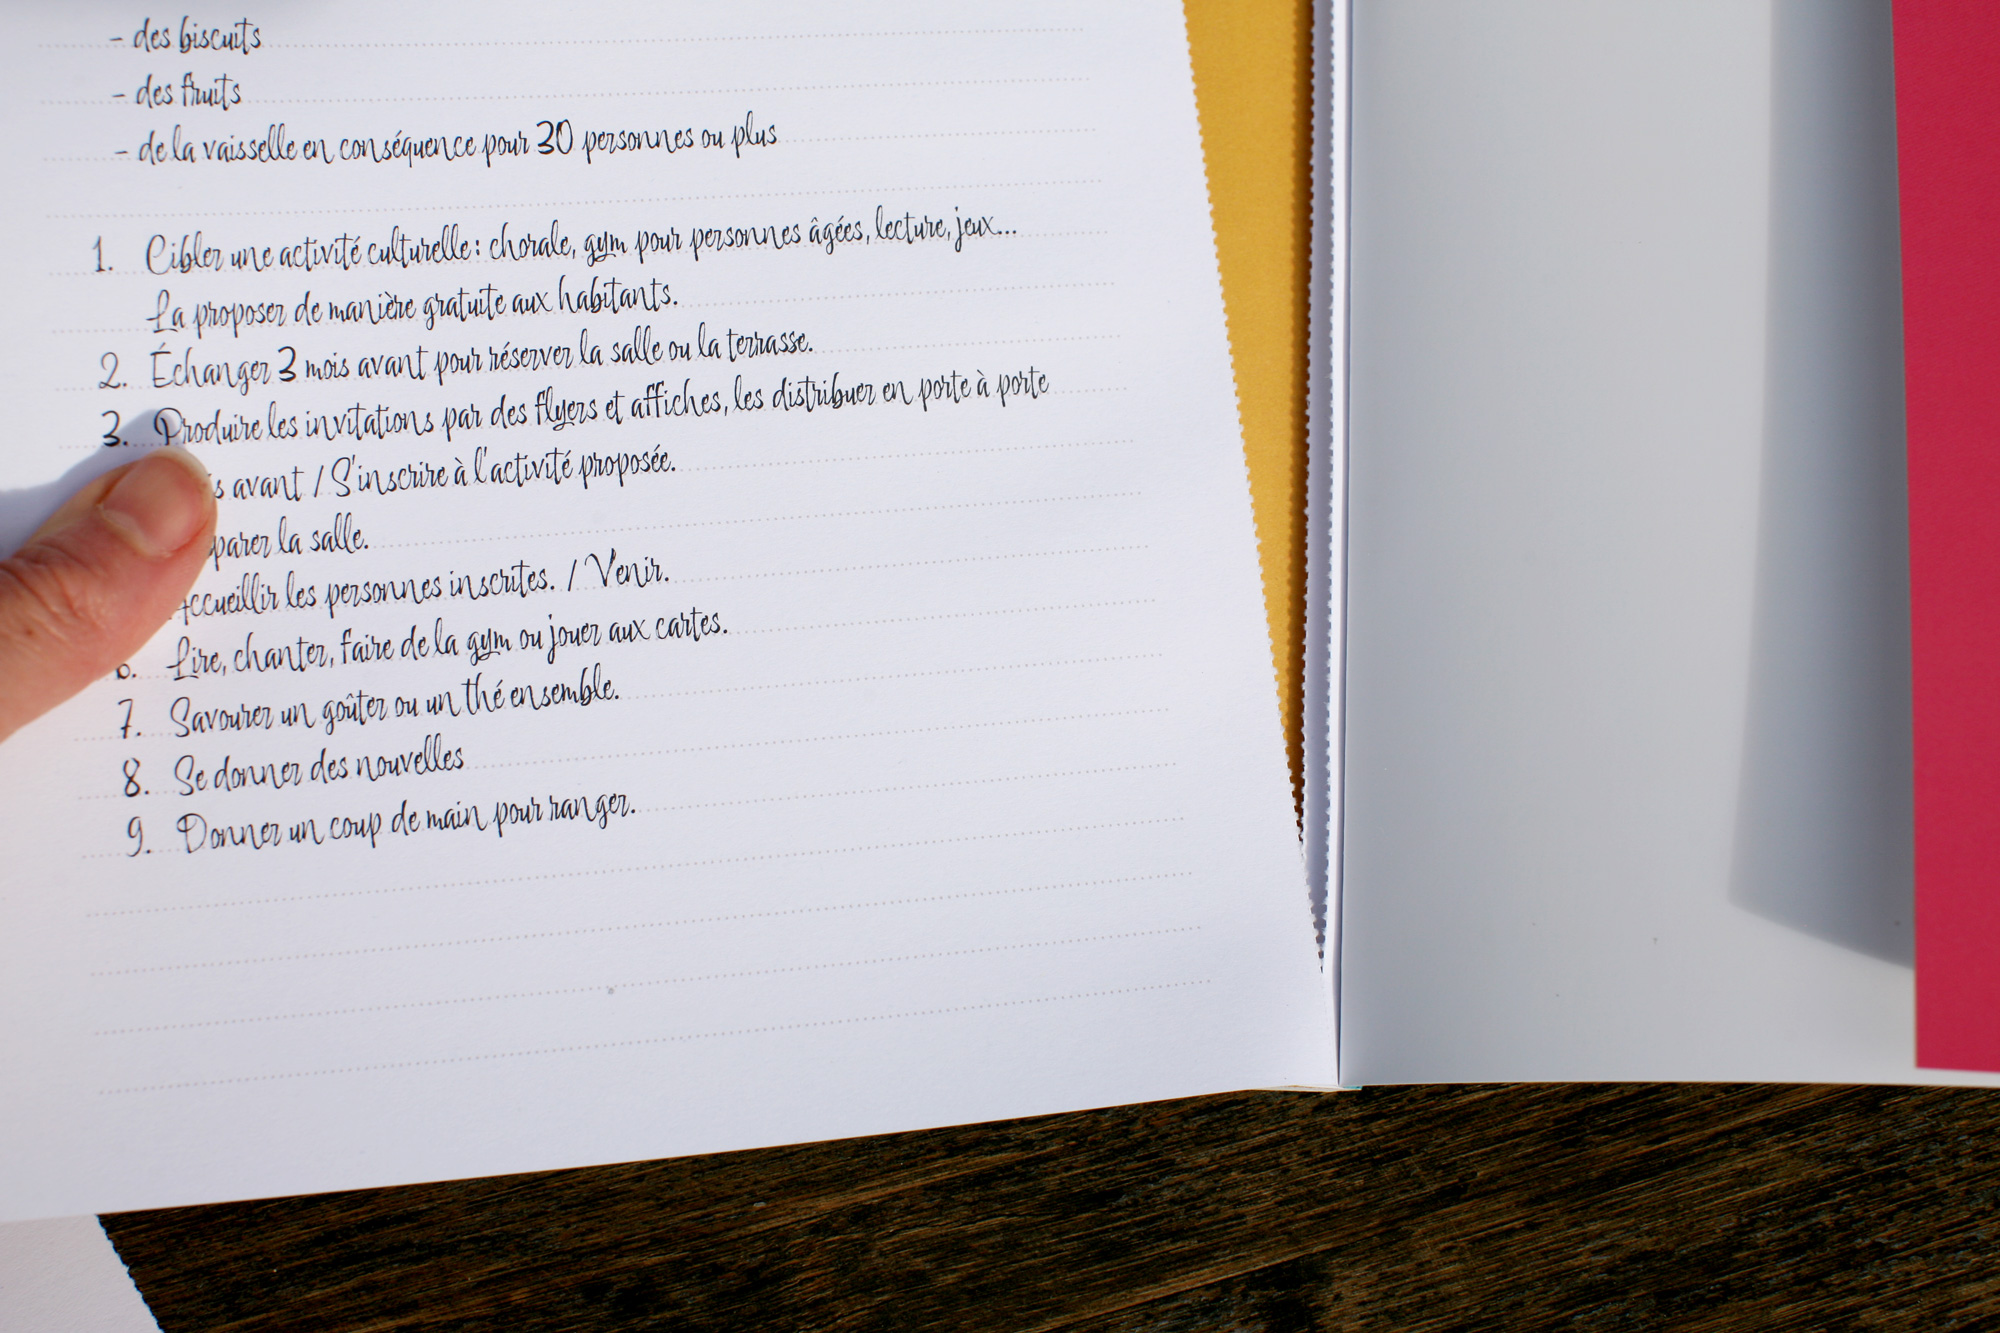 - des biscuits
- des fruits
- de la vaisselle en conséquence pour 30 personnes ou plus
1. Cibler une activité culturelle : chorale, gym pour personnes âgées, lecture, jeux...
La proposer de manière gratuite aux habitants.
2. Échanger 3 mois avant pour réserver la salle ou la terrasse.
3. Produire les invitations par des flyers et affiches, les distribuer en porte à porte
avant / S'inscrire à l'activité proposée.
la salle.
Accueillir les personnes inscrites. / Venir.
6. Lire, chanter, faire de la gym ou jouer aux cartes.
7. Savourer un goûter ou un thé ensemble.
8. Se donner des nouvelles
9. Donner un coup de main pour ranger.